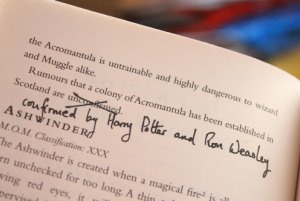 the Acromantula is untrainable and highly dangerous to wizard
and Muggle alike.
Rumours that a colony of Acromantula has been established in
Scotland are unconfirmed.
confirmed by Harry Potter and Ron Weasley
ASHWINDER
M.O.M. Classification: XXX
The Ashwinder is created when a magical fire² is
urn unchecked for too long. A thin
wing red eyes, it will
upervised